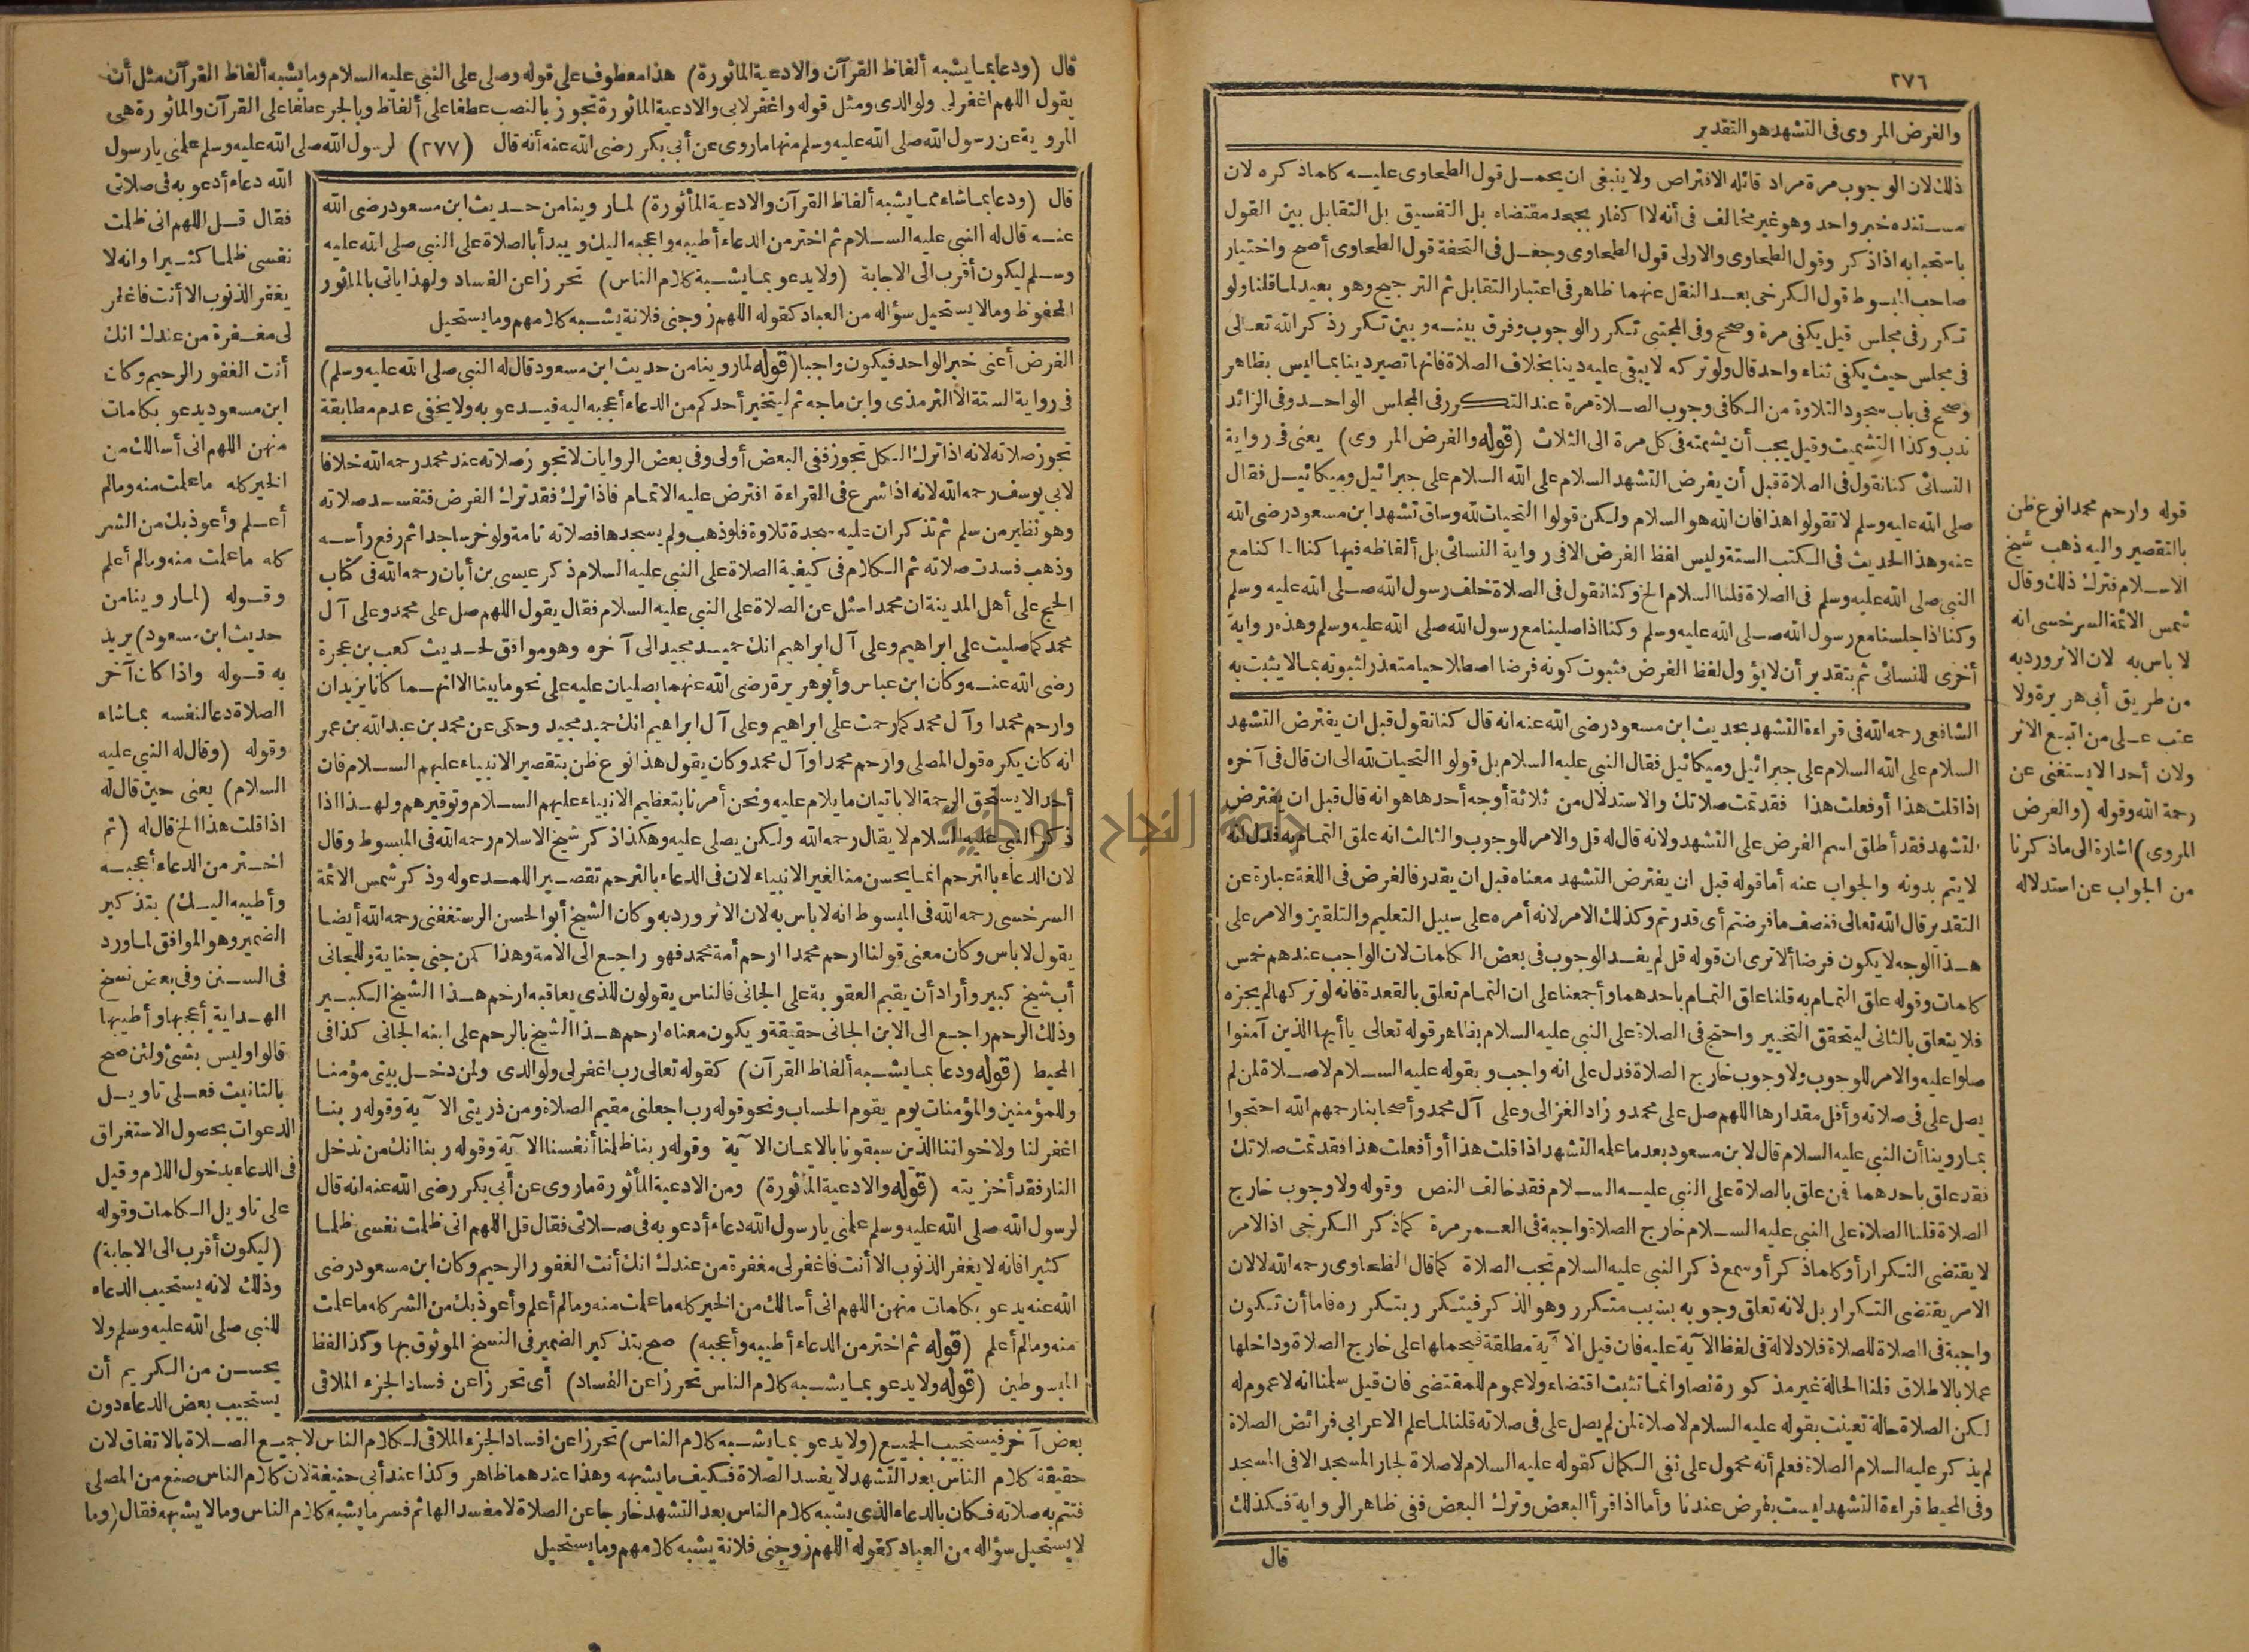 ٢٧٦
والفرض المروى فى التشهد هو التقدير
ذلك لان الوجوب مرة مراد قائله الافتراض ولا ينبغى ان يحمل قول الطحاوى عليه كلما ذكره لان
مستنده خبر واحد وهو غير مخالف فى أنه لا اكفار بجحد مقتضاه بل التفسيق بل التقابل بين القول
باستحبابه اذا ذكر وقول الطحاوى والاولى قول الطحاوى وجعل فى التحفة قول الطحاوى أصح واختيار
صاحب المبسوط قول الكرخى بعد النقل عنهما ظاهر فى اعتبار التقابل ثم الترجيح وهو بعيد لما قلنا ولو
تكرر فى مجلس قيل يكفى مرة وصحح وفى المجتبى تكرر الوجوب وفرق بينه وبين تكرر ذكر الله تعالى
فى مجلس حيث يكفى ثناء واحد قال ولو تركه لا يبقى عليه دينا بخلاف الصلاة فانها تصير دينا بما ليس بظاهر
وصحح فى باب سجود التلاوة من الكافى وجوب الصلاة مرة عند التكرر فى المجلس الواحد وفى الزائد
ندب وكذا التشميت وقيل يجب أن يشمته فى كل مرة الى الثلاث (قوله والفرض المروى) يعنى فى رواية
النسائى كنا نقول فى الصلاة قبل أن يفرض التشهد السلام على الله السلام على جبرائيل وميكائيل فقال
صلى الله عليه وسلم لا تقولوا هذا فان الله هو السلام ولكن قولوا التحيات لله وساق تشهد ابن مسعود رضى الله
عنه وهذا الحديث فى الكتب الستة وليس لفظ الفرض الا فى رواية النسائى بل ألفاظه فيها كنا اذا كنا مع
النبى صلى الله عليه وسلم فى الصلاة قلنا السلام الخ وكنا نقول فى الصلاة خلف رسول الله صلى الله عليه وسلم
وكنا اذا جلسنا مع رسول الله صلى الله عليه وسلم وكنا اذا صلينا مع رسول الله صلى الله عليه وسلم وهذه رواية
أخرى للنسائى ثم بتقدير أن لا يؤول لفظ الفرض فثبوت كونه فرضا اصطلاحيا متعذر لثبوته بما لا يثبت به
الشافعى رحمه الله فى قراءة التشهد بحديث ابن مسعود رضى الله عنه انه قال كنا نقول قبل ان يفترض التشهد
السلام على الله السلام على جبرائيل وميكائيل فقال النبى عليه السلام بل قولوا التحيات لله الى ان قال فى آخره
اذا قلت هذا أو فعلت هذا فقد تمت صلاتك والاستدلال من ثلاثة أوجه أحدها هو انه قال قبل ان يفترض
التشهد فقد أطلق اسم الفرض على التشهد ولانه قال له قل والامر للوجوب والثالث انه علق التمام به فدل انه
لا يتم بدونه والجواب عنه أما قوله قبل ان يفترض التشهد معناه قبل ان يقدر فالفرض فى اللغة عبارة عن
التقدير قال الله تعالى فنصف ما فرضتم أى قدرتم وكذلك الامر لانه أمره على سبيل التعليم والتلقين والامر على
هذا الوجه لا يكون فرضا ألا ترى ان قوله قل لم يفد الوجوب فى بعض الكلمات لان الواجب عندهم خمس
كلمات وقوله علق التمام به قلنا علق التمام باحدهما وأجمعنا على ان التمام تعلق بالقعدة فانه لو تركها لم يجزه
فلا يتعلق بالثانى ليتحقق التخيير واحتج فى الصلاة على النبى عليه السلام بظاهر قوله تعالى يا أيها الذين آمنوا
صلوا عليه والامر للوجوب ولا وجوب خارج الصلاة فدل على انه واجب وبقوله عليه السلام لا صلاة لمن لم
يصل على فى صلاته وأقل مقدارها اللهم صل على محمد وزاد الغزالى وعلى آل محمد وأصحابنا رحمهم الله احتجوا
بما روينا أن النبى عليه السلام قال لابن مسعود بعد ما علمه التشهد اذا قلت هذا أو أفعلت هذا فقد تمت صلاتك
فقد علق باحدهما فن علق بالصلاة على النبى عليه السلام فقد خالف النص وقوله ولا وجوب خارج
الصلاة قلنا الصلاة على النبى عليه السلام خارج الصلاة واجبة فى العمر مرة كما ذكر الكرخى اذ الامر
لا يقتضى التكرار أو كلما ذكر أو سمع ذكر النبى عليه السلام تجب الصلاة كما قال الطحاوى رحمه الله لا لان
الامر يقتضى التكرار بل لانه تعلق وجوبه بسبب متكرر وهو الذكر فيتكرر بتكرره فاما أن تكون
واجبة فى الصلاة للصلاة فلا دلالة فى لفظ الآية عليه فان قيل الآية مطلقة فيحملها على خارج الصلاة وداخلها
عملا بالاطلاق قلنا الحالة غير مذكورة نصا وانما تثبت اقتضاء ولا عموم للمقتضى فان قيل سلمنا انه لا عموم له
لكن الصلاة حالة تعينت بقوله عليه السلام لا صلاة لمن لم يصل على فى صلاته قلنا لما علم الاعرابى فرائض الصلاة
لم يذكر عليه السلام الصلاة فعلم أنه محمول على نفى الكمال كقوله عليه السلام لا صلاة لجار المسجد الا فى المسجد
وفى المحيط قراءة التشهد ليست بفرض عندنا وأما اذا قرأ البعض وترك البعض ففى ظاهر الرواية فكذلك
قال
قوله وارحم محمدا نوع ظن
بالتقصير واليه ذهب شيخ
الاسلام فترك ذلك وقال
شمس الائمة السرخسى انه
لا باس به لان الاثر ورد به
من طريق أبى هريرة ولا
عتب على من اتبع الاثر
ولان أحدا لا يستغنى عن
رحمة الله وقوله (والفرض
المروى) اشارة الى ما ذكرنا
من الجواب عن استدلاله
قال (ودعا بما يشبه ألفاظ القرآن والادعية الماثورة) هذا معطوف على قوله وصلى على النبى عليه السلام وما يشبه ألفاظ القرآن مثل أن
يقول اللهم اغفر لى ولوالدى ومثل قوله واغفر لابى والادعية الماثورة تجوز بالنصب عطفا على ألفاظ وبالجر عطفا على القرآن والماثورة هى
المروية عن رسول الله صلى الله عليه وسلم منها ما روى عن أبى بكر رضى الله عنه أنه قال (٢٧٧) لرسول الله صلى الله عليه وسلم علمنى يا رسول
الله دعاء أدعو به فى صلاتى
فقال قل اللهم انى ظلمت
نفسى ظلما كثيرا وانه لا
يغفر الذنوب الا أنت فاغفر
لى مغفرة من عندك انك
أنت الغفور الرحيم وكان
ابن مسعود يدعو بكلمات
منهن اللهم انى أسالك من
الخير كله ما علمت منه وما لم
أعلم وأعوذ بك من الشر
كله ما علمت منه وما لم أعلم
وقوله (لما روينا من
حديث ابن مسعود) يريد
به قوله واذا كان آخر
الصلاة دعا لنفسه بما شاء
وقوله (وقال له النبى عليه
السلام) يعنى حين قال له
اذا قلت هذا الخ قال له (ثم
اختر من الدعاء أعجبه
وأطيبه اليك) بتذكير
الضمير وهو الموافق لما ورد
فى السنن وفى بعض نسخ
الهداية أعجبها وأطيبها
قالوا وليس بشئ ولئن صح
بالتانيث فعلى تاويل
الدعوات بحصول الاستغراق
فى الدعاء بدخول اللام وقيل
على تاويل الكلمات وقوله
(ليكون أقرب الى الاجابة)
وذلك لانه يستحيب الدعاء
للنبى صلى الله عليه وسلم ولا
يحسن من الكريم أن
يستجيب بعض الدعاء دون
قال (ودعا بما شاء مما يشبه ألفاظ القرآن والادعية المأثورة) لما روينا من حديث ابن مسعود رضى الله
عنه قال له النبى عليه السلام ثم اختر من الدعاء أطيبه واعجبه اليك ويبدأ بالصلاة على النبى صلى الله عليه
وسلم ليكون أقرب الى الاجابة (ولا يدعو بما يشبه كلام الناس) تحرزا عن الفساد ولهذا ياتى بالماثور
المحفوظ وما لا يستحيل سؤاله من العباد كقوله اللهم زوجنى فلانة يشبه كلامهم وما يستحيل
الفرض أعنى خبر الواحد فيكون واجبا (قوله لما روينا من حديث ابن مسعود قال له النبى صلى الله عليه وسلم)
فى رواية الستة الا الترمذى وابن ماجه ثم ليتخير أحدكم من الدعاء أعجبه اليه فيدعو به ولا يخفى عدم مطابقة
تجوز صلاته لانه اذا ترك الكل تجوز ففى البعض أولى وفى بعض الروايات لا تجوز صلاته عند محمد رحمه الله خلافا
لابى يوسف رحمه الله لانه اذا شرع فى القراءة افترض عليه الاتمام فاذا ترك فقد ترك الفرض فتفسد صلاته
وهو نظير من سلم ثم تذكر ان عليه سجدة تلاوة فلو ذهب ولم يسجدها فصلاته تامة ولو خر ساجدا ثم رفع رأسه
وذهب فسدت صلاته ثم الكلام فى كيفية الصلاة على النبى عليه السلام ذكر عيسى بن أبان رحمه الله فى كتاب
الحج على أهل المدينة ان محمدا سئل عن الصلاة على النبى عليه السلام فقال يقول اللهم صل على محمد وعلى آل
محمد كما صليت على ابراهيم وعلى آل ابراهيم انك حميد مجيد الى آخره وهو موافق لحديث كعب بن عجرة
رضى الله عنه وكان ابن عباس وأبو هريرة رضى الله عنهما يصليان عليه على نحو ما بينا الا انهما كانا يزيدان
وارحم محمدا وآل محمد كما رحمت على ابراهيم وعلى آل ابراهيم انك حميد مجيد وحكى عن محمد بن عبد الله بن عمر
انه كان يكره قول المصلى وارحم محمدا وآل محمد وكان يقول هذا نوع ظن بتقصير الانبياء عليهم السلام فان
أحدا لا يستحق الرحمة الا باتيان ما يلام عليه ونحن أمرنا بتعظيم الانبياء عليهم السلام وتوقيرهم ولهذا اذا
ذكر النبى عليه السلام لا يقال رحمه الله ولكن يصلى عليه وهكذا ذكر شيخ الاسلام رحمه الله فى المبسوط وقال
لان الدعاء بالترحم انما يحسن منا لغير الانبياء لان فى الدعاء بالترحم تقصير المدعو له وذكر شمس الائمة
السرخسى رحمه الله فى المبسوط انه لا باس به لان الاثر ورد به وكان الشيخ أبو الحسن الرستغفنى رحمه الله أيضا
يقول لا باس وكان معنى قولنا ارحم محمدا ارحم أمة محمد فهو راجع الى الامة وهذا كمن جنى جناية وللجانى
أب شيخ كبير وأراد أن يقيم العقوبة على الجانى فالناس يقولون للذى يعاقبه ارحم هذا الشيخ الكبير
وذلك الرحم راجع الى الابن الجانى حقيقة ويكون معناه ارحم هذا الشيخ بالرحم على ابنه الجانى كذا فى
المحيط (قوله ودعا بما يشبه ألفاظ القرآن) كقوله تعالى رب اغفر لى ولوالدى ولمن دخل بيتى مؤمنا
وللمؤمنين والمؤمنات يوم يقوم الحساب ونحو قوله رب اجعلنى مقيم الصلاة ومن ذريتى الآية وقوله ربنا
اغفر لنا ولاخواننا الذين سبقونا بالايمان الآية وقوله ربنا ظلمنا أنفسنا الآية وقوله ربنا انك من تدخل
النار فقد أخزيته (قوله والادعية المأثورة) ومن الادعية المأثورة ما روى عن أبى بكر رضى الله عنه انه قال
لرسول الله صلى الله عليه وسلم علمنى يا رسول الله دعاء أدعو به فى صلاتى فقال قل اللهم انى ظلمت نفسى ظلما
كثيرا فانه لا يغفر الذنوب الا أنت فاغفر لى مغفرة من عندك انك أنت الغفور الرحيم وكان ابن مسعود رضى
الله عنه يدعو بكلمات منهن اللهم انى أسالك من الخير كله ما علمت منه وما لم أعلم وأعوذ بك من الشر كله ما علمت
منه وما لم أعلم (قوله ثم اختر من الدعاء أطيبه وأعجبه) صح بتذكير الضمير فى النسخ الموثوق بها وكذا لفظ
المبسوطين (قوله ولا يدعو بما يشبه كلام الناس تحرزا عن الفساد) أى تحرزا عن فساد الجزء الملاقى
بعض آخر فيستجيب الجميع (ولا يدعو بما يشبه كلام الناس) تحرزا عن افساد الجزء الملاقى لكلام الناس لا جميع الصلاة بالاتفاق لان
حقيقة كلام الناس بعد التشهد لا يفسد الصلاة فكيف ما يشبهه وهذا عندهما ظاهر وكذا عند أبى حنيفة لان كلام الناس صنع من المصلى
فتتم به صلاته فكان بالدعاء الذى يشبه كلام الناس بعد التشهد خارجا عن الصلاة لا مفسدا لها ثم فسر ما يشبه كلام الناس وما لا يشبهه فقال (وما
لا يستحيل سؤاله من العباد كقوله اللهم زوجنى فلانة يشبه كلامهم وما يستحيل
جامعة النجاح الوطنية